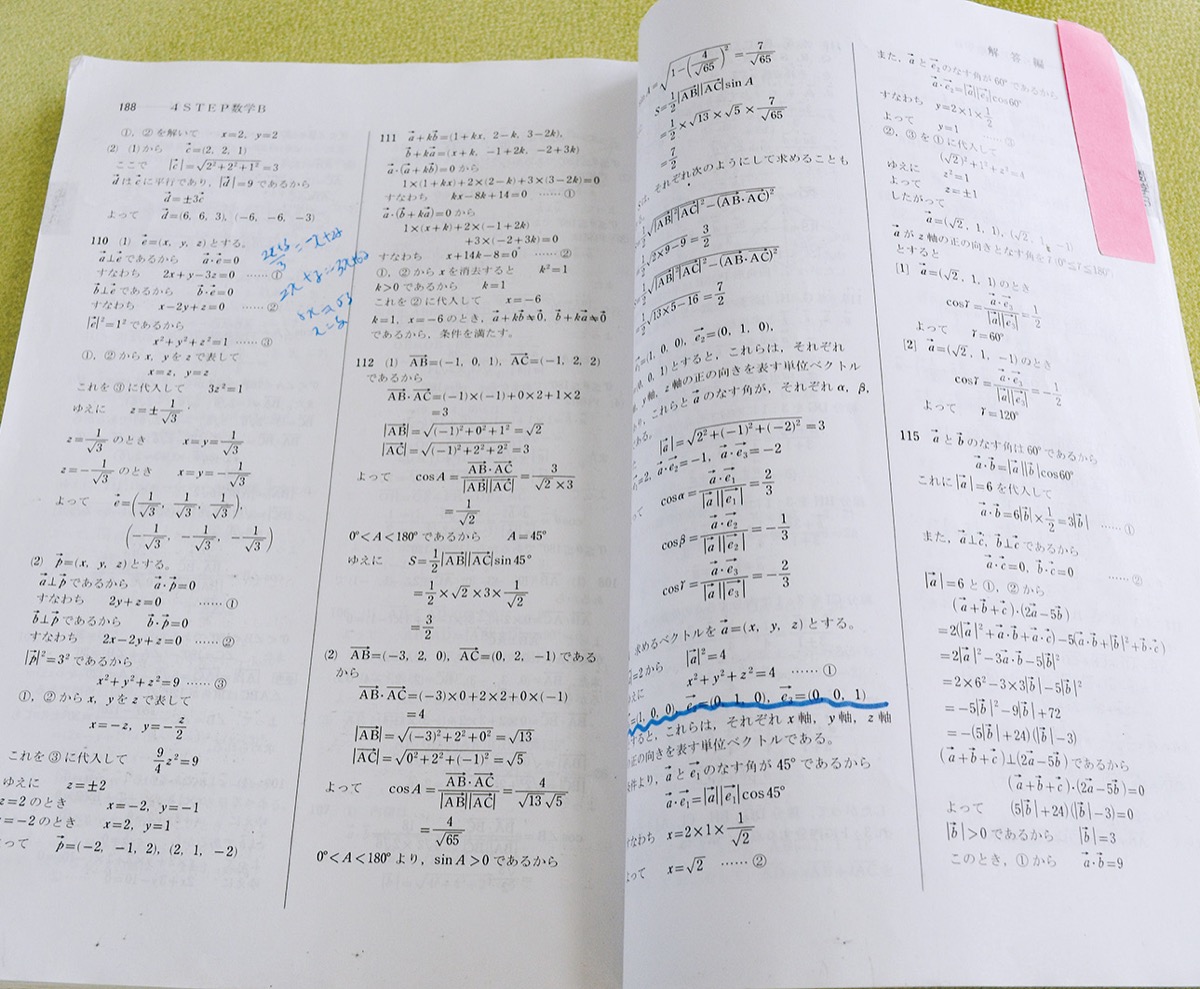 188 4STEP数学B
①，②を解いて x=2, y=2
(2) (1)から c⃗=(2, 2, 1)
ここで |c⃗|=√(2²+2²+1²)=3
d⃗はc⃗に平行であり，|d⃗|=9であるから
d⃗=±3c⃗
よって d⃗=(6, 6, 3), (-6, -6, -3)
110 (1) e⃗=(x, y, z)とする。
a⃗⊥e⃗であるから a⃗·e⃗=0
すなわち 2x+y-3z=0 ……①
b⃗⊥e⃗であるから b⃗·e⃗=0
すなわち x-2y+z=0 ……②
|e⃗|²=1²であるから
x²+y²+z²=1 ……③
①，②からx, yをzで表して
x=z, y=z
これを③に代入して 3z²=1
ゆえに z=±1/√3
z=1/√3 のとき x=y=1/√3
z=-1/√3 のとき x=y=-1/√3
よって e⃗=(1/√3, 1/√3, 1/√3),
(-1/√3, -1/√3, -1/√3)
(2) p⃗=(x, y, z)とする。
a⃗⊥p⃗であるから a⃗·p⃗=0
すなわち 2y+z=0 ……①
b⃗⊥p⃗であるから b⃗·p⃗=0
すなわち 2x-2y+z=0 ……②
|p⃗|²=3²であるから
x²+y²+z²=9 ……③
①，②からx, yをzで表して
x=-z, y=-z/2
これを③に代入して 9/4 z²=9
ゆえに z=±2
z=2のとき x=-2, y=-1
=-2のとき x=2, y=1
って p⃗=(-2, -1, 2), (2, 1, -2)
111 a⃗+kb⃗=(1+kx, 2-k, 3-2k),
b⃗+ka⃗=(x+k, -1+2k, -2+3k)
a⃗·(a⃗+kb⃗)=0から
1×(1+kx)+2×(2-k)+3×(3-2k)=0
すなわち kx-8k+14=0 ……①
a⃗·(b⃗+ka⃗)=0から
1×(x+k)+2×(-1+2k)
+3×(-2+3k)=0
すなわち x+14k-8=0 ……②
①，②からxを消去すると k²=1
k>0であるから k=1
これを②に代入して x=-6
k=1, x=-6のとき，a⃗+kb⃗≠0⃗, b⃗+ka⃗≠0⃗
であるから，条件を満たす。
112 (1) AB⃗=(-1, 0, 1), AC⃗=(-1, 2, 2)
であるから
AB⃗·AC⃗=(-1)×(-1)+0×2+1×2
=3
|AB⃗|=√((-1)²+0²+1²)=√2
|AC⃗|=√((-1)²+2²+2²)=3
よって cosA=AB⃗·AC⃗/|AB⃗||AC⃗|=3/(√2×3)
=1/√2
0°<A<180°であるから A=45°
ゆえに S=1/2|AB⃗||AC⃗|sin45°
=1/2×√2×3×1/√2
=3/2
(2) AB⃗=(-3, 2, 0), AC⃗=(0, 2, -1)である
から
AB⃗·AC⃗=(-3)×0+2×2+0×(-1)
=4
|AB⃗|=√((-3)²+2²+0²)=√13
|AC⃗|=√(0²+2²+(-1)²)=√5
よって cosA=AB⃗·AC⃗/|AB⃗||AC⃗|=4/(√13√5)
=4/√65
0°<A<180°より，sinA>0であるから
A=√(1-(4/√65)²)=7/√65
S=1/2|AB⃗||AC⃗|sinA
=1/2×√13×√5×7/√65
=7/2
それぞれ次のようにして求めることも
√(|AB⃗|²|AC⃗|²-(AB⃗·AC⃗)²)
√(2×9-9)=3/2
√(|AB⃗|²|AC⃗|²-(AB⃗·AC⃗)²)
√(13×5-16)=7/2
=(1, 0, 0), e₂⃗=(0, 1, 0),
0, 1)とすると，これらは，それぞれ
y軸，z軸の正の向きを表す単位ベクトル
これらとa⃗のなす角が，それぞれα, β,
|a⃗|=√(2²+(-1)²+(-2)²)=3
=2, a⃗·e₂⃗=-1, a⃗·e₃⃗=-2
って cosα=a⃗·e₁⃗/|a⃗||e₁⃗|=2/3
cosβ=a⃗·e₂⃗/|a⃗||e₂⃗|=-1/3
cosγ=a⃗·e₃⃗/|a⃗||e₃⃗|=-2/3
求めるベクトルをa⃗=(x, y, z)とする。
=2から |a⃗|²=4
えに x²+y²+z²=4 ……①
=(1, 0, 0), e₂⃗=(0, 1, 0), e₃⃗=(0, 0, 1)
すると，これらは，それぞれx軸，y軸，z軸
正の向きを表す単位ベクトルである。
件より，a⃗とe₁⃗のなす角が45°であるから
a⃗·e₁⃗=|a⃗||e₁⃗|cos45°
なわち x=2×1×1/√2
よって x=√2 ……②
解答編
また，a⃗とe₂⃗のなす角が60°であるから
a⃗·e₂⃗=|a⃗||e₂⃗|cos60°
すなわち y=2×1×1/2
よって y=1 ……③
②，③を①に代入して
(√2)²+1²+z²=4
ゆえに z²=1
よって z=±1
したがって
a⃗=(√2, 1, 1), (√2, 1, -1)
a⃗がz軸の正の向きとなす角をγ(0°≦γ≦180°)
とすると
[1] a⃗=(√2, 1, 1)のとき
cosγ=a⃗·e₃⃗/|a⃗||e₃⃗|=1/2
よって γ=60°
[2] a⃗=(√2, 1, -1)のとき
cosγ=a⃗·e₃⃗/|a⃗||e₃⃗|=-1/2
よって γ=120°
115 a⃗とb⃗のなす角は60°であるから
a⃗·b⃗=|a⃗||b⃗|cos60°
これに|a⃗|=6を代入して
a⃗·b⃗=6|b⃗|×1/2=3|b⃗| ……①
また，a⃗⊥c⃗, b⃗⊥c⃗であるから
a⃗·c⃗=0, b⃗·c⃗=0 ……②
|a⃗|=6と①，②から
(a⃗+b⃗+c⃗)·(2a⃗-5b⃗)
=2(|a⃗|²+a⃗·b⃗+a⃗·c⃗)-5(a⃗·b⃗+|b⃗|²+b⃗·c⃗)
=2|a⃗|²-3a⃗·b⃗-5|b⃗|²
=2×6²-3×3|b⃗|-5|b⃗|²
=-5|b⃗|²-9|b⃗|+72
=-(5|b⃗|+24)(|b⃗|-3)
(a⃗+b⃗+c⃗)⊥(2a⃗-5b⃗)であるから
(a⃗+b⃗+c⃗)·(2a⃗-5b⃗)=0
よって (5|b⃗|+24)(|b⃗|-3)=0
|b⃗|>0であるから |b⃗|=3
このとき，①から a⃗·b⃗=9